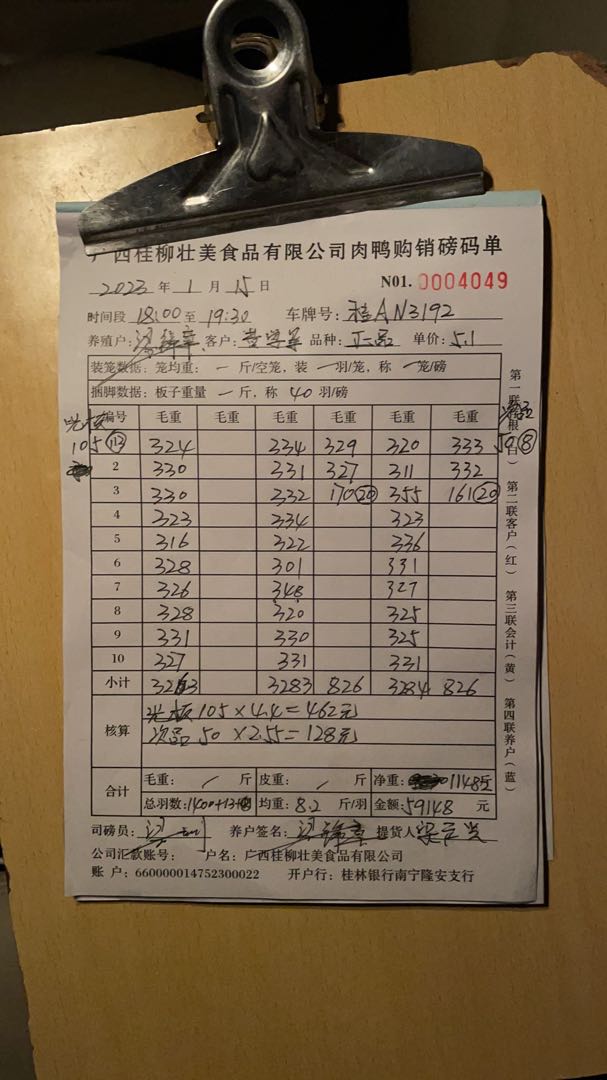 广西桂柳壮美食品有限公司肉鸭购销磅码单
2023 年 1 月 15 日 N01. 0004049
时间段 18:00 至 19:30 车牌号: 桂AN3192
养殖户: 客户: 品种: 正品 单价: 5.1
装笼数据: 笼均重: 一 斤/空笼, 装 一 羽/笼, 称 一 笼/磅
捆脚数据: 板子重量 一 斤, 称 40 羽/磅
编号 毛重 毛重 毛重 毛重 毛重 毛重
105 (113) 324 334 329 320 333 50 (8)
2 330 331 327 311 332
3 330 332 170 (20) 355 161 (20)
4 323 334 323
5 316 322 336
6 328 301 331
7 326 348 327
8 328 320 325
9 331 330 325
10 327 331 331
小计 3263 3283 826 3284 826
核算
105 × 4.4 = 462元
次品 50 × 2.55 = 128元
合计
毛重: 斤 皮重: 斤 净重: 11485
总羽数: 1400+13+8 均重: 8.2 斤/羽 金额: 59148 元
司磅员: 养户签名: 提货人
公司汇款账号: 户名: 广西桂柳壮美食品有限公司
账 户: 660000014752300022 开户行: 桂林银行南宁隆安支行
第一联存根(白) 第二联客户(红) 第三联会计(黄) 第四联养户(蓝)